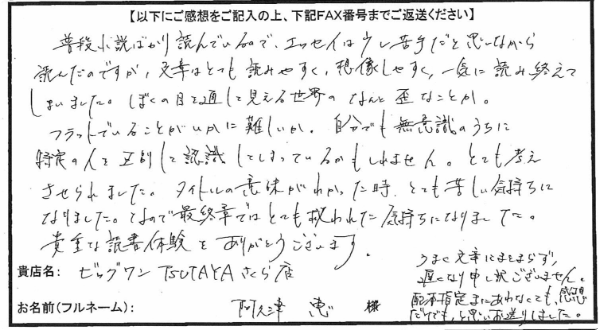 【以下にご感想をご記入の上、下記FAX番号までご返送ください】
普段小説ばかり読んでいるので、エッセイは少し苦手だと思いながら
読んだのですが、文章はとても読みやすく、想像しやすく、一気に読み終えて
しまいました。ぼくの目を通して見える世界のなんと歪なことか。
フラットでいることがいかに難しいか。自分でも無意識のうちに
特定の人を区別して認識してしまっているかもしれません。とても考え
させられました。タイトルの意味がわかった時、とても苦しい気持ちに
なりました。なので最終章ではとても救われた気持ちになりました。
貴重な読書体験をありがとうございます。
貴店名: ビッグワンTSUTAYAさくら店
お名前(フルネーム): 阿久津 恵 様
うまく文章にまとまらず、
遅くなり申し訳ございません。
配本指定にまにあわなくても、感想
だけでも、と思いお送りしました。